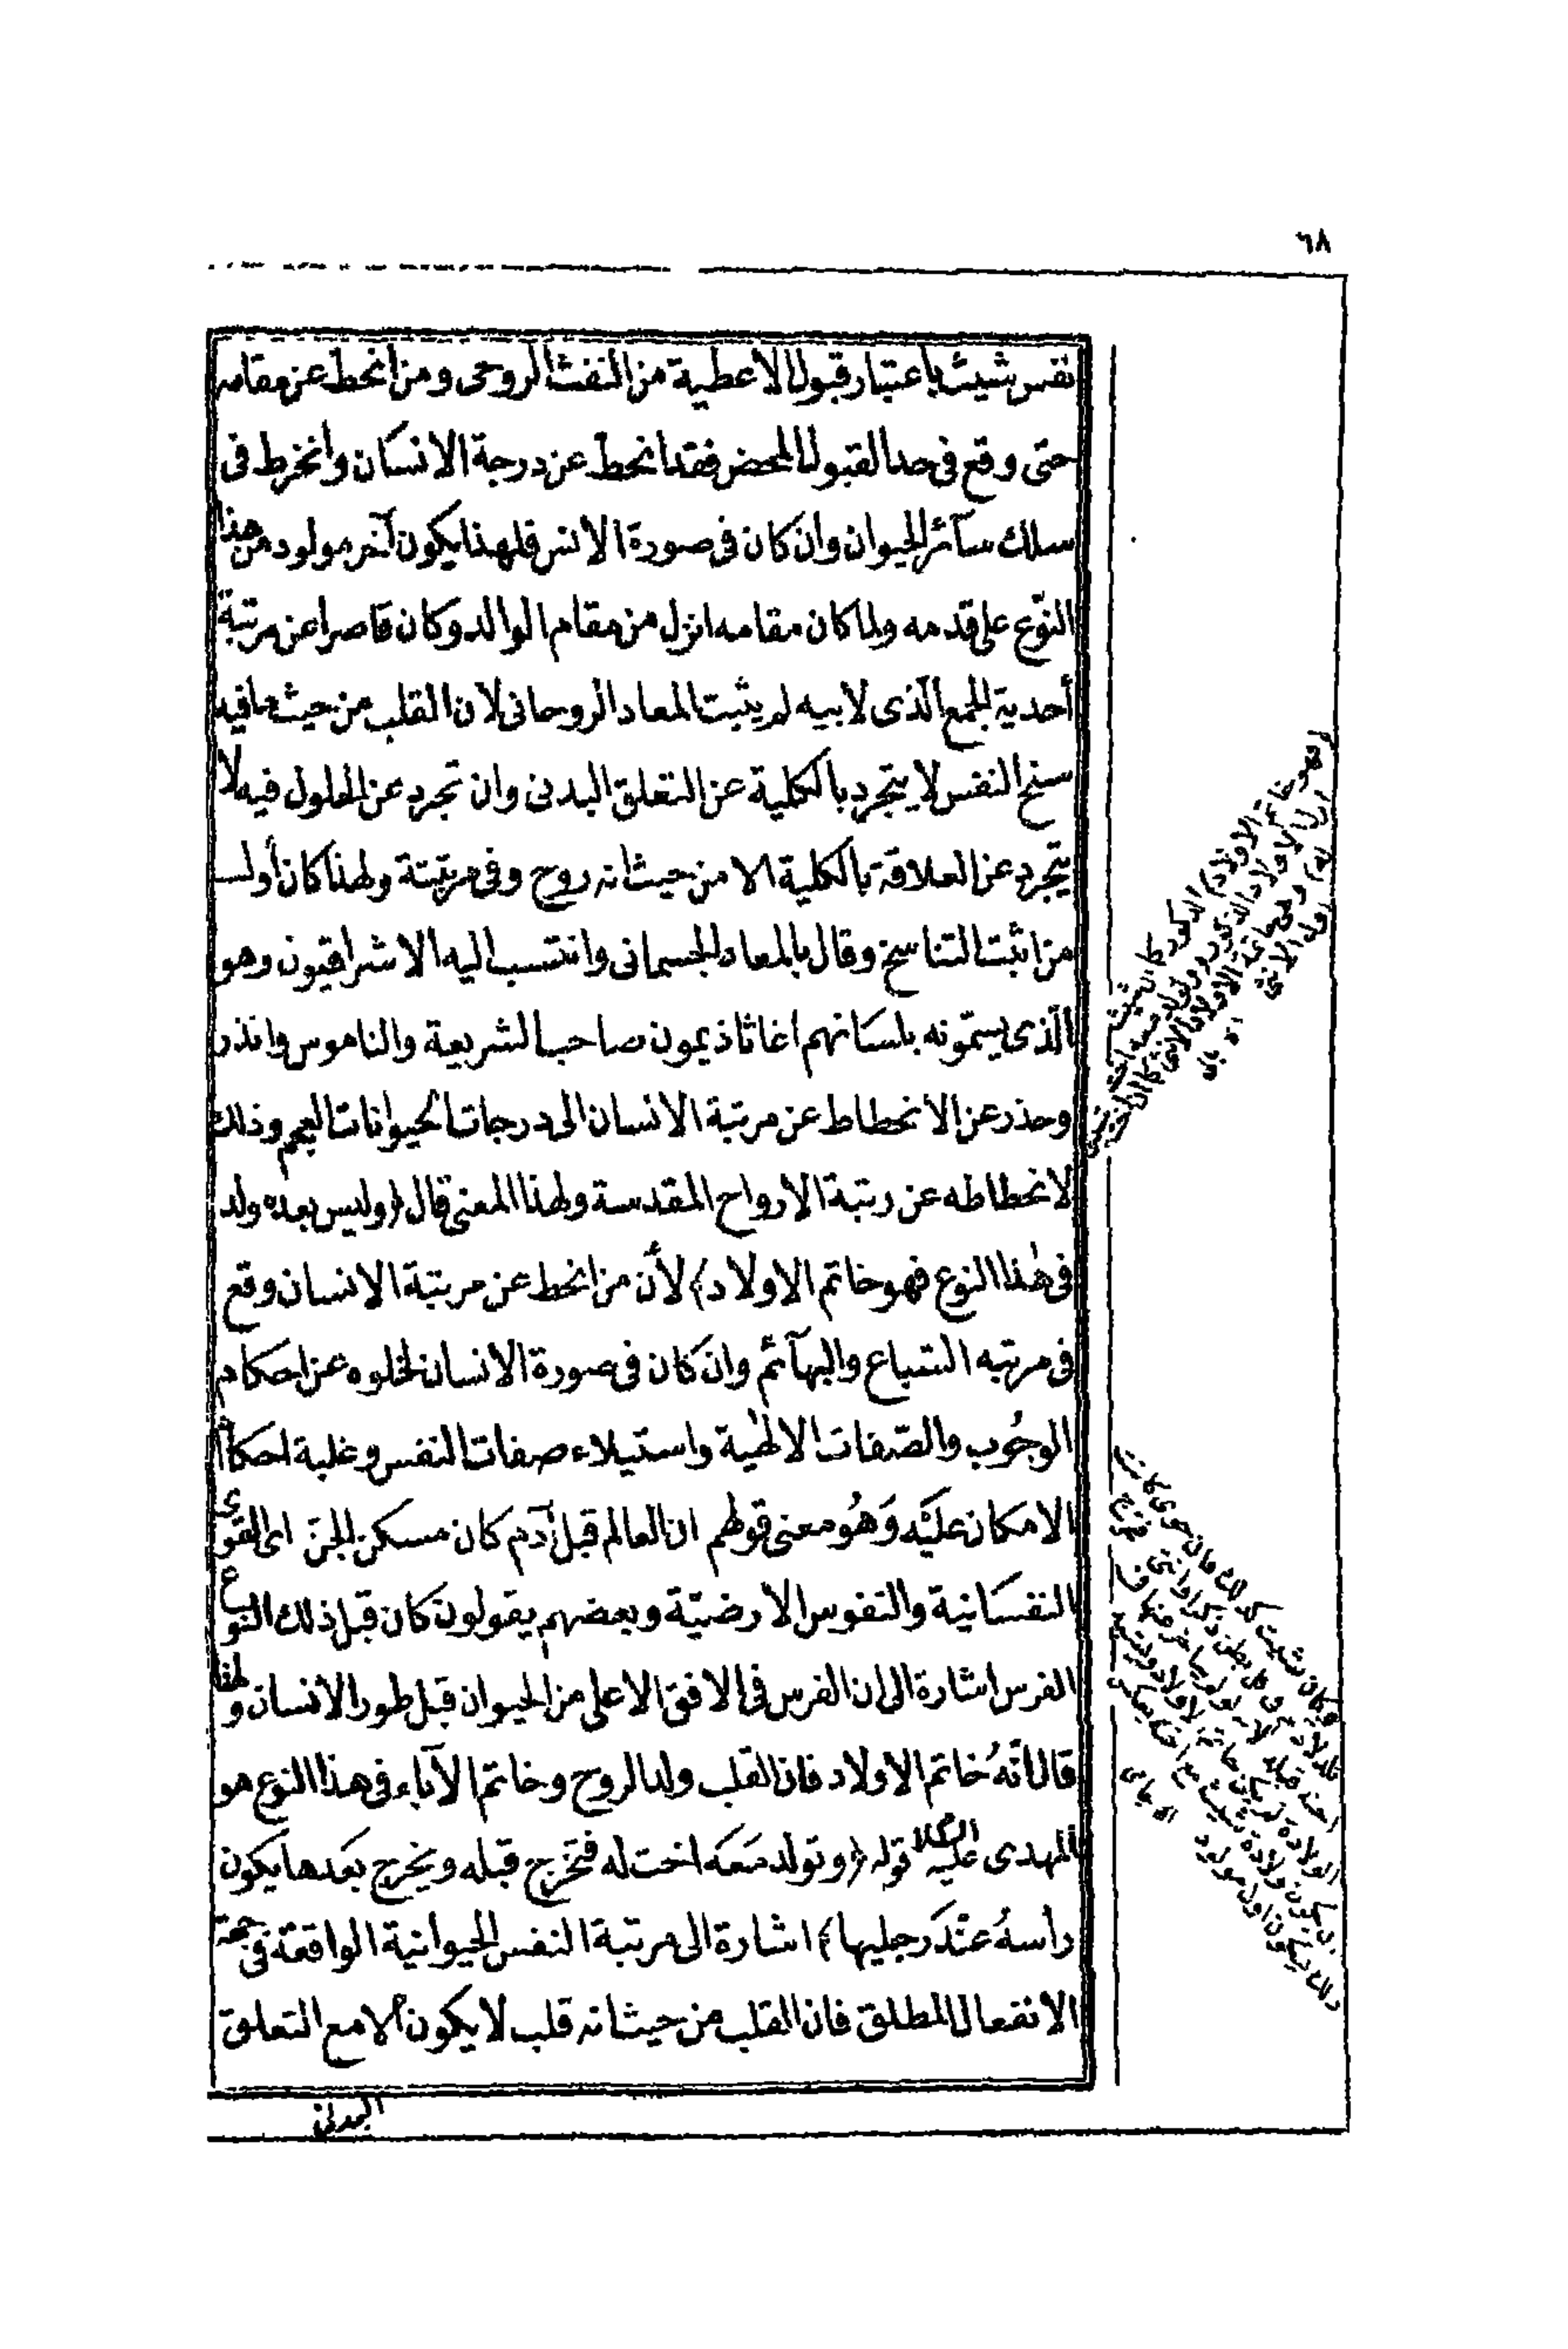 ٦٨
نفس شيث باعتبار قبول الأعطية من النفث الروحى ومن انحط عن مقامه
حتى وقع فى حد القبول المحض فقد انحط عن درجة الانسان وانخرط فى
سلك سآئر الحيوان وان كان فى صورة الانس فلهذا يكون آخر مولود من هذا
النوع على قدمه ولما كان مقامه انزل من مقام الوالد وكان قاصرا عن مرتبة
أحدية الجمع الذى لابيه لم يثبت المعاد الروحانى لان القلب من حيث ما فيه
سنخ النفس لا يتجرد بالكلية عن التعلق البدنى وان تجرد عن الحلول فيه لا
يتجرد عن العلاقة بالكلية الا من حيث انه روح وفى مرتبتة ولهذا كان أول
من اثبت التناسخ وقال بالمعاد الجسمانى وانتسب اليه الاشراقيون وهو
الذى يسمّونه بلسانهم اغاثاذيمون صاحب الشريعة والناموس وانذر
وحذر عن الانحطاط عن مرتبة الانسان الى درجات الحيوانات العجم وذلك
لانحطاطه عن رتبة الارواح المقدسة ولهذا المعنى قال (وليس بعده ولد
فى هذا النوع فهو خاتم الاولاد) لأن من انحط عن مرتبة الانسان وقع
فى مرتبه السباع والبهآئم وان كان فى صورة الانسان لخلوه عن احكام
الوجُوب والصّفات الالهية واستيلاء صفات النفس وغلبة احكام
الامكان عليْه وَهُو معنى قولهم ان العالم قبل آدم كان مسكن الجن اى القوى
النفسانية والنفوس الارضيّة وبعضهم يقولون كان قبل ذلك النوع
الفرس اشارة الى ان الفرس فى الافق الاعلى من الحيوان قبل طور الانسان ولهذا
قال انّهُ خاتم الاولاد فان القلب ولد الروح وخاتم الآباء فى هذا النوع هو
المهدى عليه السلام قوله (وتولد مَعَه اخت له فتخرج قبله ويخرج بعْدها يكون
رأسهُ عنْدَ رجليها) اشارة الى مرتبة النفس الحيوانية الواقعة فى جهة
الانفعال المطلق فان القلب من حيث انه قلب لا يكون الا مع التعلق
البدنى